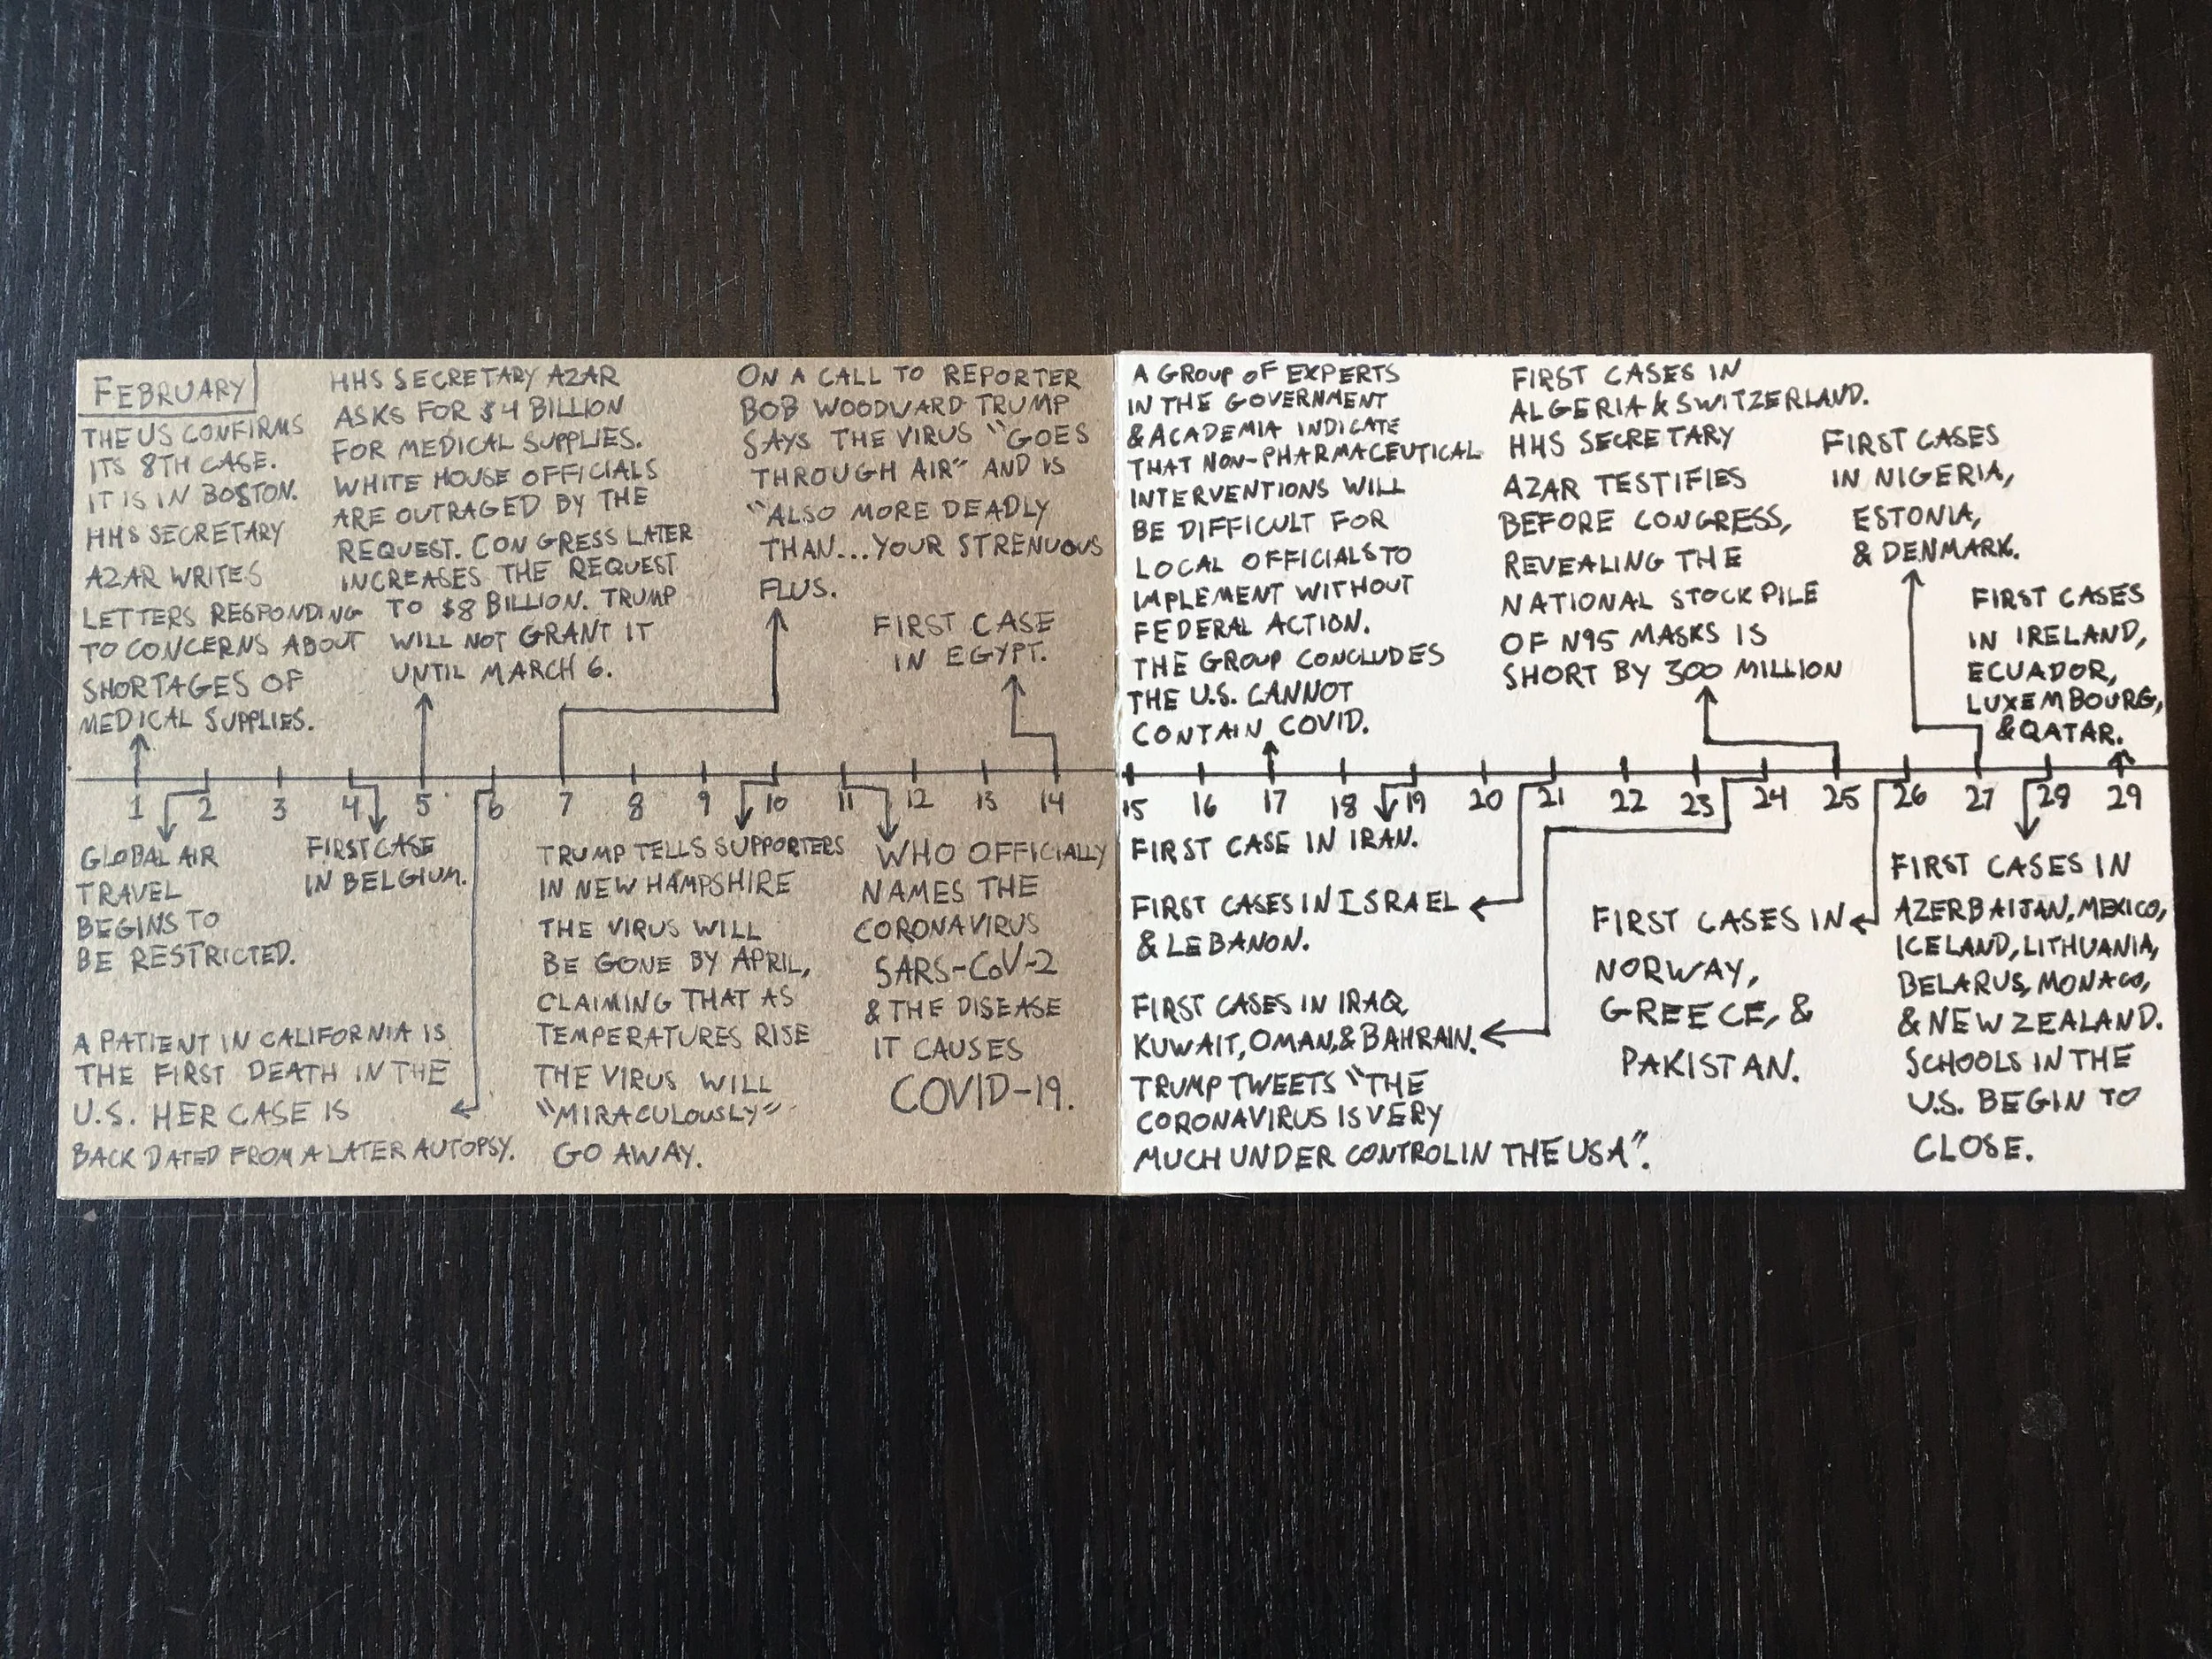 FEBRUARY
THE US CONFIRMS
ITS 8TH CASE.
IT IS IN BOSTON.
HHS SECRETARY
AZAR WRITES
LETTERS RESPONDING
TO CONCERNS ABOUT
SHORTAGES OF
MEDICAL SUPPLIES.
HHS SECRETARY AZAR
ASKS FOR $4 BILLION
FOR MEDICAL SUPPLIES.
WHITE HOUSE OFFICIALS
ARE OUTRAGED BY THE
REQUEST. CONGRESS LATER
INCREASES THE REQUEST
TO $8 BILLION. TRUMP
WILL NOT GRANT IT
UNTIL MARCH 6.
ON A CALL TO REPORTER
BOB WOODWARD TRUMP
SAYS THE VIRUS "GOES
THROUGH AIR" AND IS
"ALSO MORE DEADLY
THAN...YOUR STRENUOUS
FLUS.
FIRST CASE
IN EGYPT.
A GROUP OF EXPERTS
IN THE GOVERNMENT
& ACADEMIA INDICATE
THAT NON-PHARMACEUTICAL
INTERVENTIONS WILL
BE DIFFICULT FOR
LOCAL OFFICIALS TO
IMPLEMENT WITHOUT
FEDERAL ACTION.
THE GROUP CONCLUDES
THE U.S. CANNOT
CONTAIN COVID.
FIRST CASES IN
ALGERIA & SWITZERLAND.
HHS SECRETARY
AZAR TESTIFIES
BEFORE CONGRESS,
REVEALING THE
NATIONAL STOCKPILE
OF N95 MASKS IS
SHORT BY 300 MILLION
FIRST CASES
IN NIGERIA,
ESTONIA,
& DENMARK.
FIRST CASES
IN IRELAND,
ECUADOR,
LUXEMBOURG,
& QATAR.
1 2 3 4 5 6 7 8 9 10 11 12 13 14 15 16 17 18 19 20 21 22 23 24 25 26 27 28 29
GLOBAL AIR
TRAVEL
BEGINS TO
BE RESTRICTED.
FIRST CASE
IN BELGIUM.
A PATIENT IN CALIFORNIA IS
THE FIRST DEATH IN THE
U.S. HER CASE IS
BACK DATED FROM A LATER AUTOPSY.
TRUMP TELLS SUPPORTERS
IN NEW HAMPSHIRE
THE VIRUS WILL
BE GONE BY APRIL,
CLAIMING THAT AS
TEMPERATURES RISE
THE VIRUS WILL
"MIRACULOUSLY"
GO AWAY.
WHO OFFICIALLY
NAMES THE
CORONAVIRUS
SARS-CoV-2
& THE DISEASE
IT CAUSES
COVID-19.
FIRST CASE IN IRAN.
FIRST CASES IN ISRAEL
& LEBANON.
FIRST CASES IN IRAQ,
KUWAIT, OMAN, & BAHRAIN.
TRUMP TWEETS "THE
CORONAVIRUS IS VERY
MUCH UNDER CONTROL IN THE USA".
FIRST CASES IN
NORWAY,
GREECE, &
PAKISTAN.
FIRST CASES IN
AZERBAIJAN, MEXICO,
ICELAND, LITHUANIA,
BELARUS, MONACO,
& NEW ZEALAND.
SCHOOLS IN THE
U.S. BEGIN TO
CLOSE.